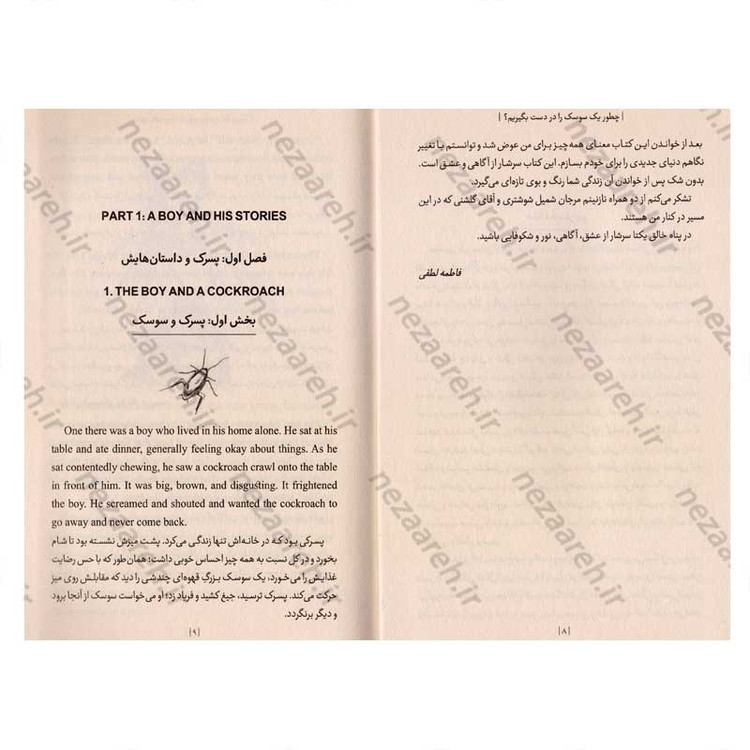 | چطور یک سوسک را در دست بگیریم؟ |
بعد از خواندن این کتاب معنای همه چیز برای من عوض شد و توانستم با تغییر
نگاهم دنیای جدیدی را برای خودم بسازم. این کتاب سرشار از آگاهی و عشق است.
بدون شک پس از خواندن آن زندگی شما رنگ و بوی تازه‌ای می‌گیرد.
تشکر می‌کنم از دو همراه نازنینم مرجان شمیل شوشتری و آقای گلشنی که در این
مسیر در کنار من هستند.
در پناه خالق یکتا سرشار از عشق، آگاهی، نور و شکوفایی باشید.
فاطمه لطفی
| ۸ |
PART 1: A BOY AND HIS STORIES
فصل اول: پسرک و داستان‌هایش
1. THE BOY AND A COCKROACH
بخش اول: پسرک و سوسک
One there was a boy who lived in his home alone. He sat at his
table and ate dinner, generally feeling okay about things. As he
sat contentedly chewing, he saw a cockroach crawl onto the table
in front of him. It was big, brown, and disgusting. It frightened
the boy. He screamed and shouted and wanted the cockroach to
go away and never come back.
پسرکی بود که در خانه‌اش تنها زندگی می‌کرد. پشت میزش نشسته بود تا شام
بخورد و در کل نسبت به همه چیز احساس خوبی داشت؛ همان‌طور که با حس رضایت
غذایش را می‌خورد، یک سوسک بزرگِ قهوه‌ای چندشی را دید که مقابلش روی میز
حرکت می‌کند. پسرک ترسید، جیغ کشید و فریاد زد؛ او می‌خواست سوسک از آنجا برود
و دیگر برنگردد.
| ۹ |
nezaareh.ir
nezaareh.ir
nezaareh.ir
nezaareh.ir
nezaareh.ir
nezaareh.ir
nezaareh.ir
nezaareh.ir
nezaareh.ir
nezaareh.ir
nezaareh.ir